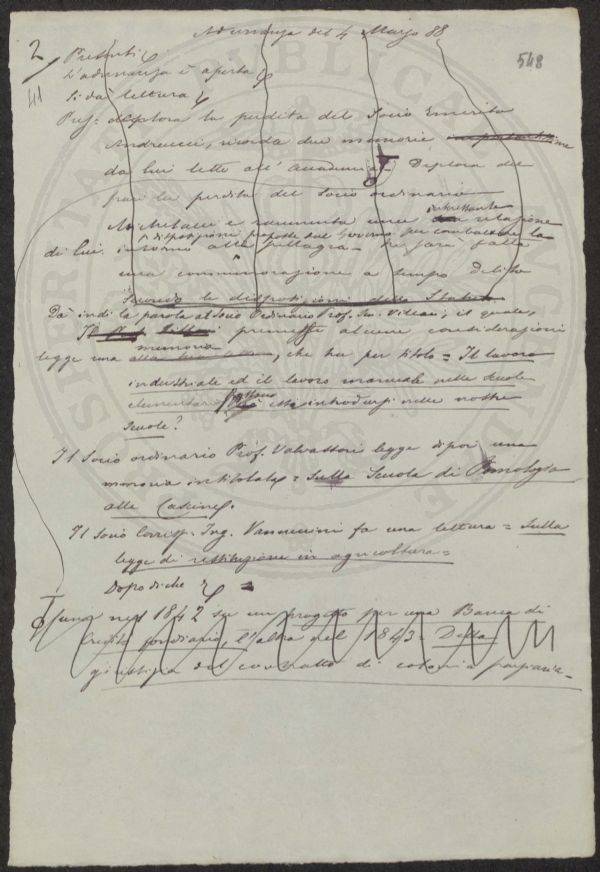 Adunanza del 4 Marzo 88
2
548
Presenti
41
L'adunanza è aperta
Si dà lettura
Pres. deplora la perdita del Socio Emerito
Andreucci, ricorda due memorie
da lui lette all' Accademia. Deplora del
pari la perdita del Socio ordinario
Michelacci e rammenta una interessante relazione
disposizioni proposte dal Governo per combattere la
di lui intorno alla pellagra. Sarà fatta
una commemorazione a tempo debito
Secondo le disposizioni dello Statuto
Dà indi la parola al Socio Ordinario Prof. Villari, il quale,
premesse alcune considerazioni
legge una memoria, che ha per titolo = Il lavoro
industriale ed il lavoro manuale nelle scuole
elementari. Possono essi introdursi nelle nostre
scuole?
Il Socio ordinario Prof. Valvassori legge dipoi una
memoria intitolata = Sulla Scuola di Pomologia
alle Cascine.
Il Socio Corrisp. Ing. Vannuccini fa una lettura = Sulla
legge di restituzione in agricoltura =
Dopodichè
l'una nel 1842 su un progetto per una Banca di
Credito fondiario, l'altra nel 1843 = Della
giustizia del contratto di colonia parziaria =